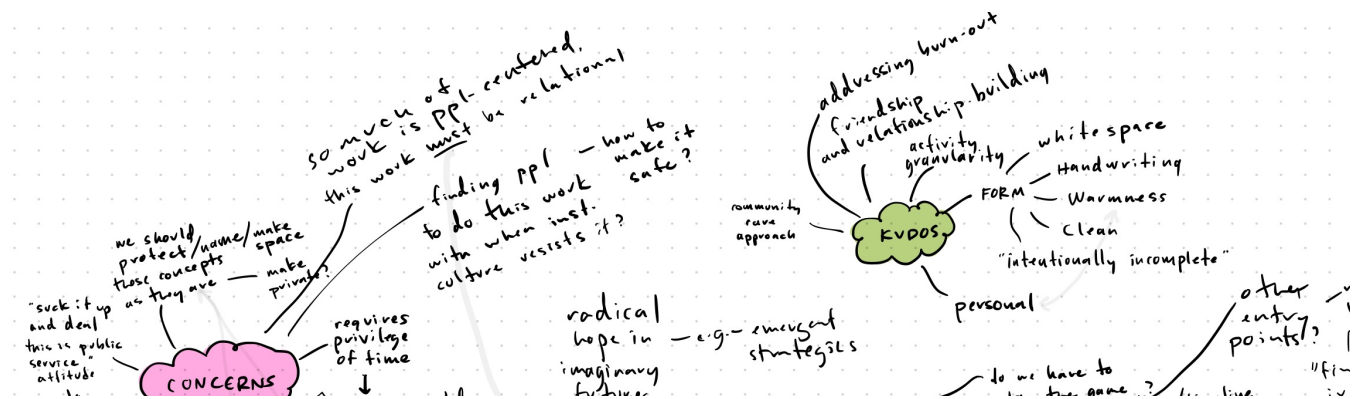 so much of
work is ppl-centered.
this work must be relational
finding ppl
to do this work
with when inst.
culture resists it?
— how to
make it
safe?
we should
protect/name/make
space
these concepts
as they are
— make
private?
"suck it up
and deal
this is public
service"
attitude
CONCERNS
requires
privilege
of time
radical
hope in
imaginary
futures
— e.g. — emergent
strategies
addressing burn-out
friendship
and relationship-building
activity
granularity
community
care
approach
KUDOS
FORM
whitespace
Handwriting
Warmness
Clean
"intentionally incomplete"
personal
other
entry
points?
do we have to
the game
?